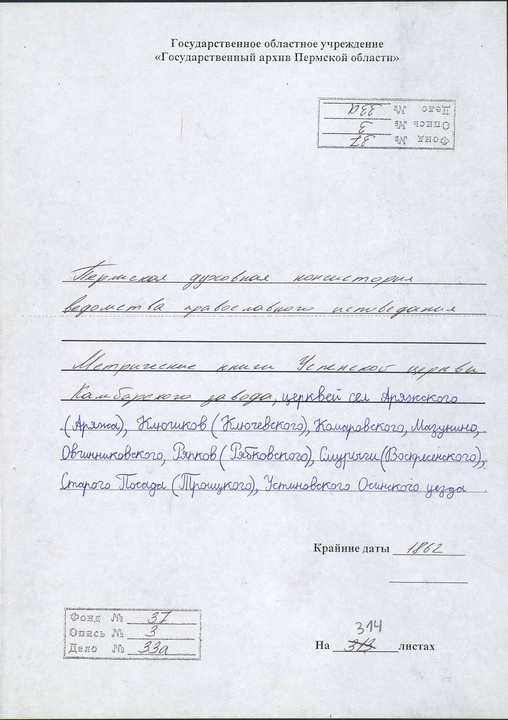 Государственное областное учреждение
«Государственный архив Пермской области»
Фонд № 37
Опись № 3
Дело № 33а
Пермская духовная консистория
ведомства православного исповедания
Метрические книги Успенской церквы
Камбарского завода, церквей сел Аряжского
(Аряжа), Ключиков (Ключевского), Комаровского, Мазунино,
Овчинниковского, Рябков (Рябковского), Смурыги (Воскресенского),
Старого Посада (Троицкого), Устиновского Осинского уезда
Крайние даты 1862
Фонд № 37
Опись № 3
Дело № 33а
314
На 313 листах